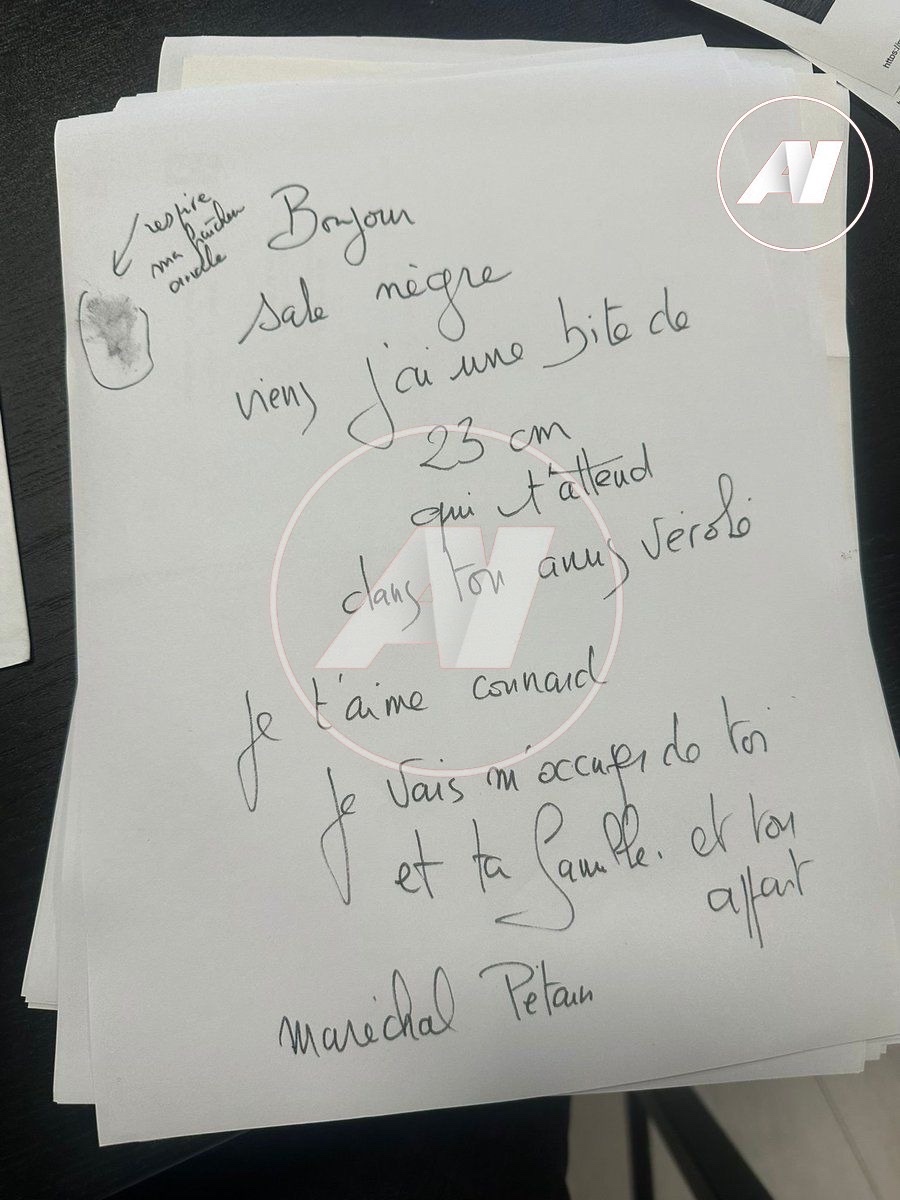 respire
ma fraîcheur
anale
Bonjour
sale nègre
viens j'ai une bite de
23 cm
qui t'attend
dans ton anus vérolé
Je t'aime connard
Je vais m'occuper de toi
et ta famille. et ton
appart
maréchal Pétain
AI
AI
https://